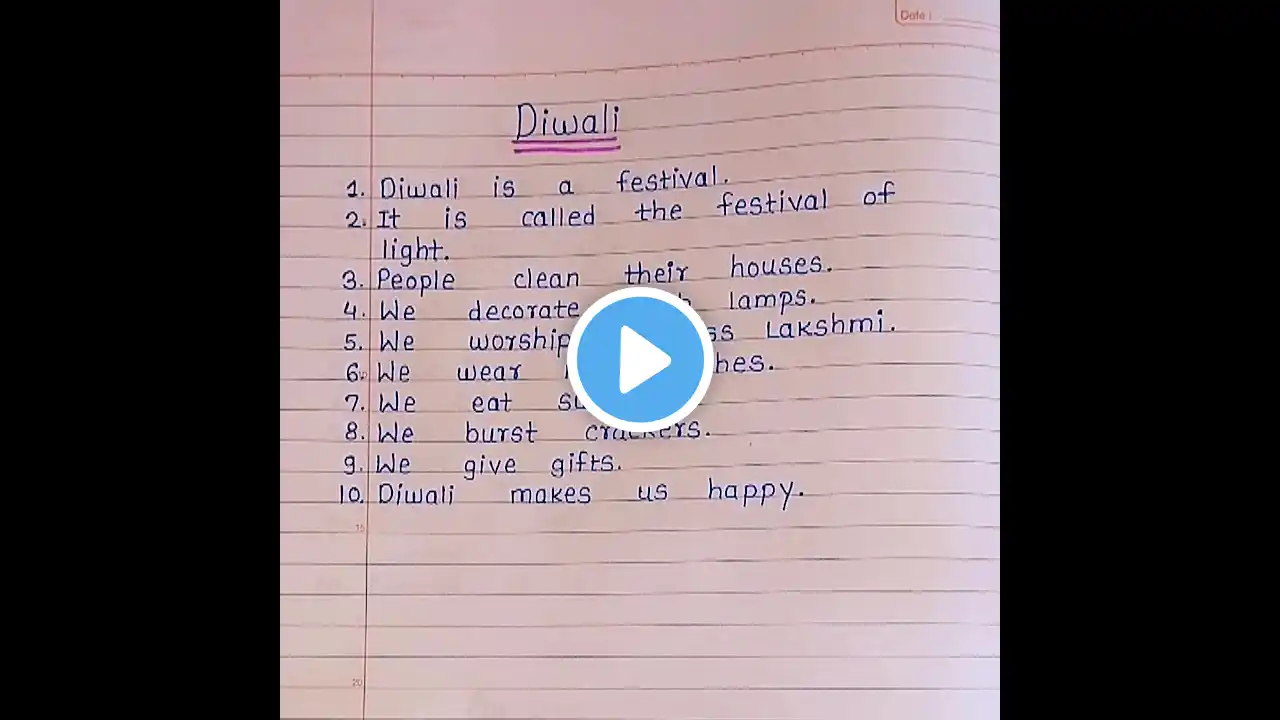 Date :
Diwali
1. Diwali is a festival.
2. It is called the festival of
light.
3. People clean their houses.
4. We decorate lamps.
5. We worship Lakshmi.
6. We wear
7. We eat
8. We burst crackers.
9. We give gifts.
10. Diwali makes us happy.
15
20